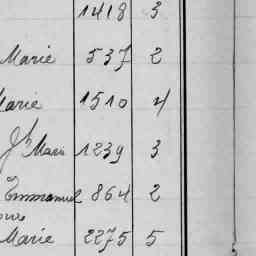 1418 3
Marie 537 2
Marie 1510 4
Jh Marie 1239 3
Emmanuel 2864 2
Marie 2275 5